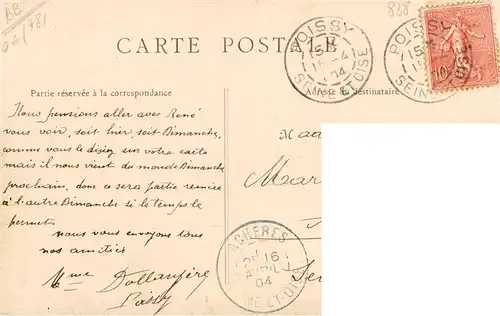 BB
02/981
838
CARTE POSTALE
POISSY
SEINE-ET-OISE
04
POISSY
SEINE-ET-OISE
10
Partie réservée à la correspondance
Adresse du destinataire
Nous pensions aller avec René
vous voir, soit hier, soit Dimanche,
comme vous le disiez sur votre carte
mais il nous vient du monde Dimanche
prochain, donc ce sera partie remise
à l'autre Dimanche si le temps le
permet
nous vous envoyons tous
nos amitiés
Mme
Poissy
Mar
ACHERES
16
AVRIL
04
SEINE-ET-OISE